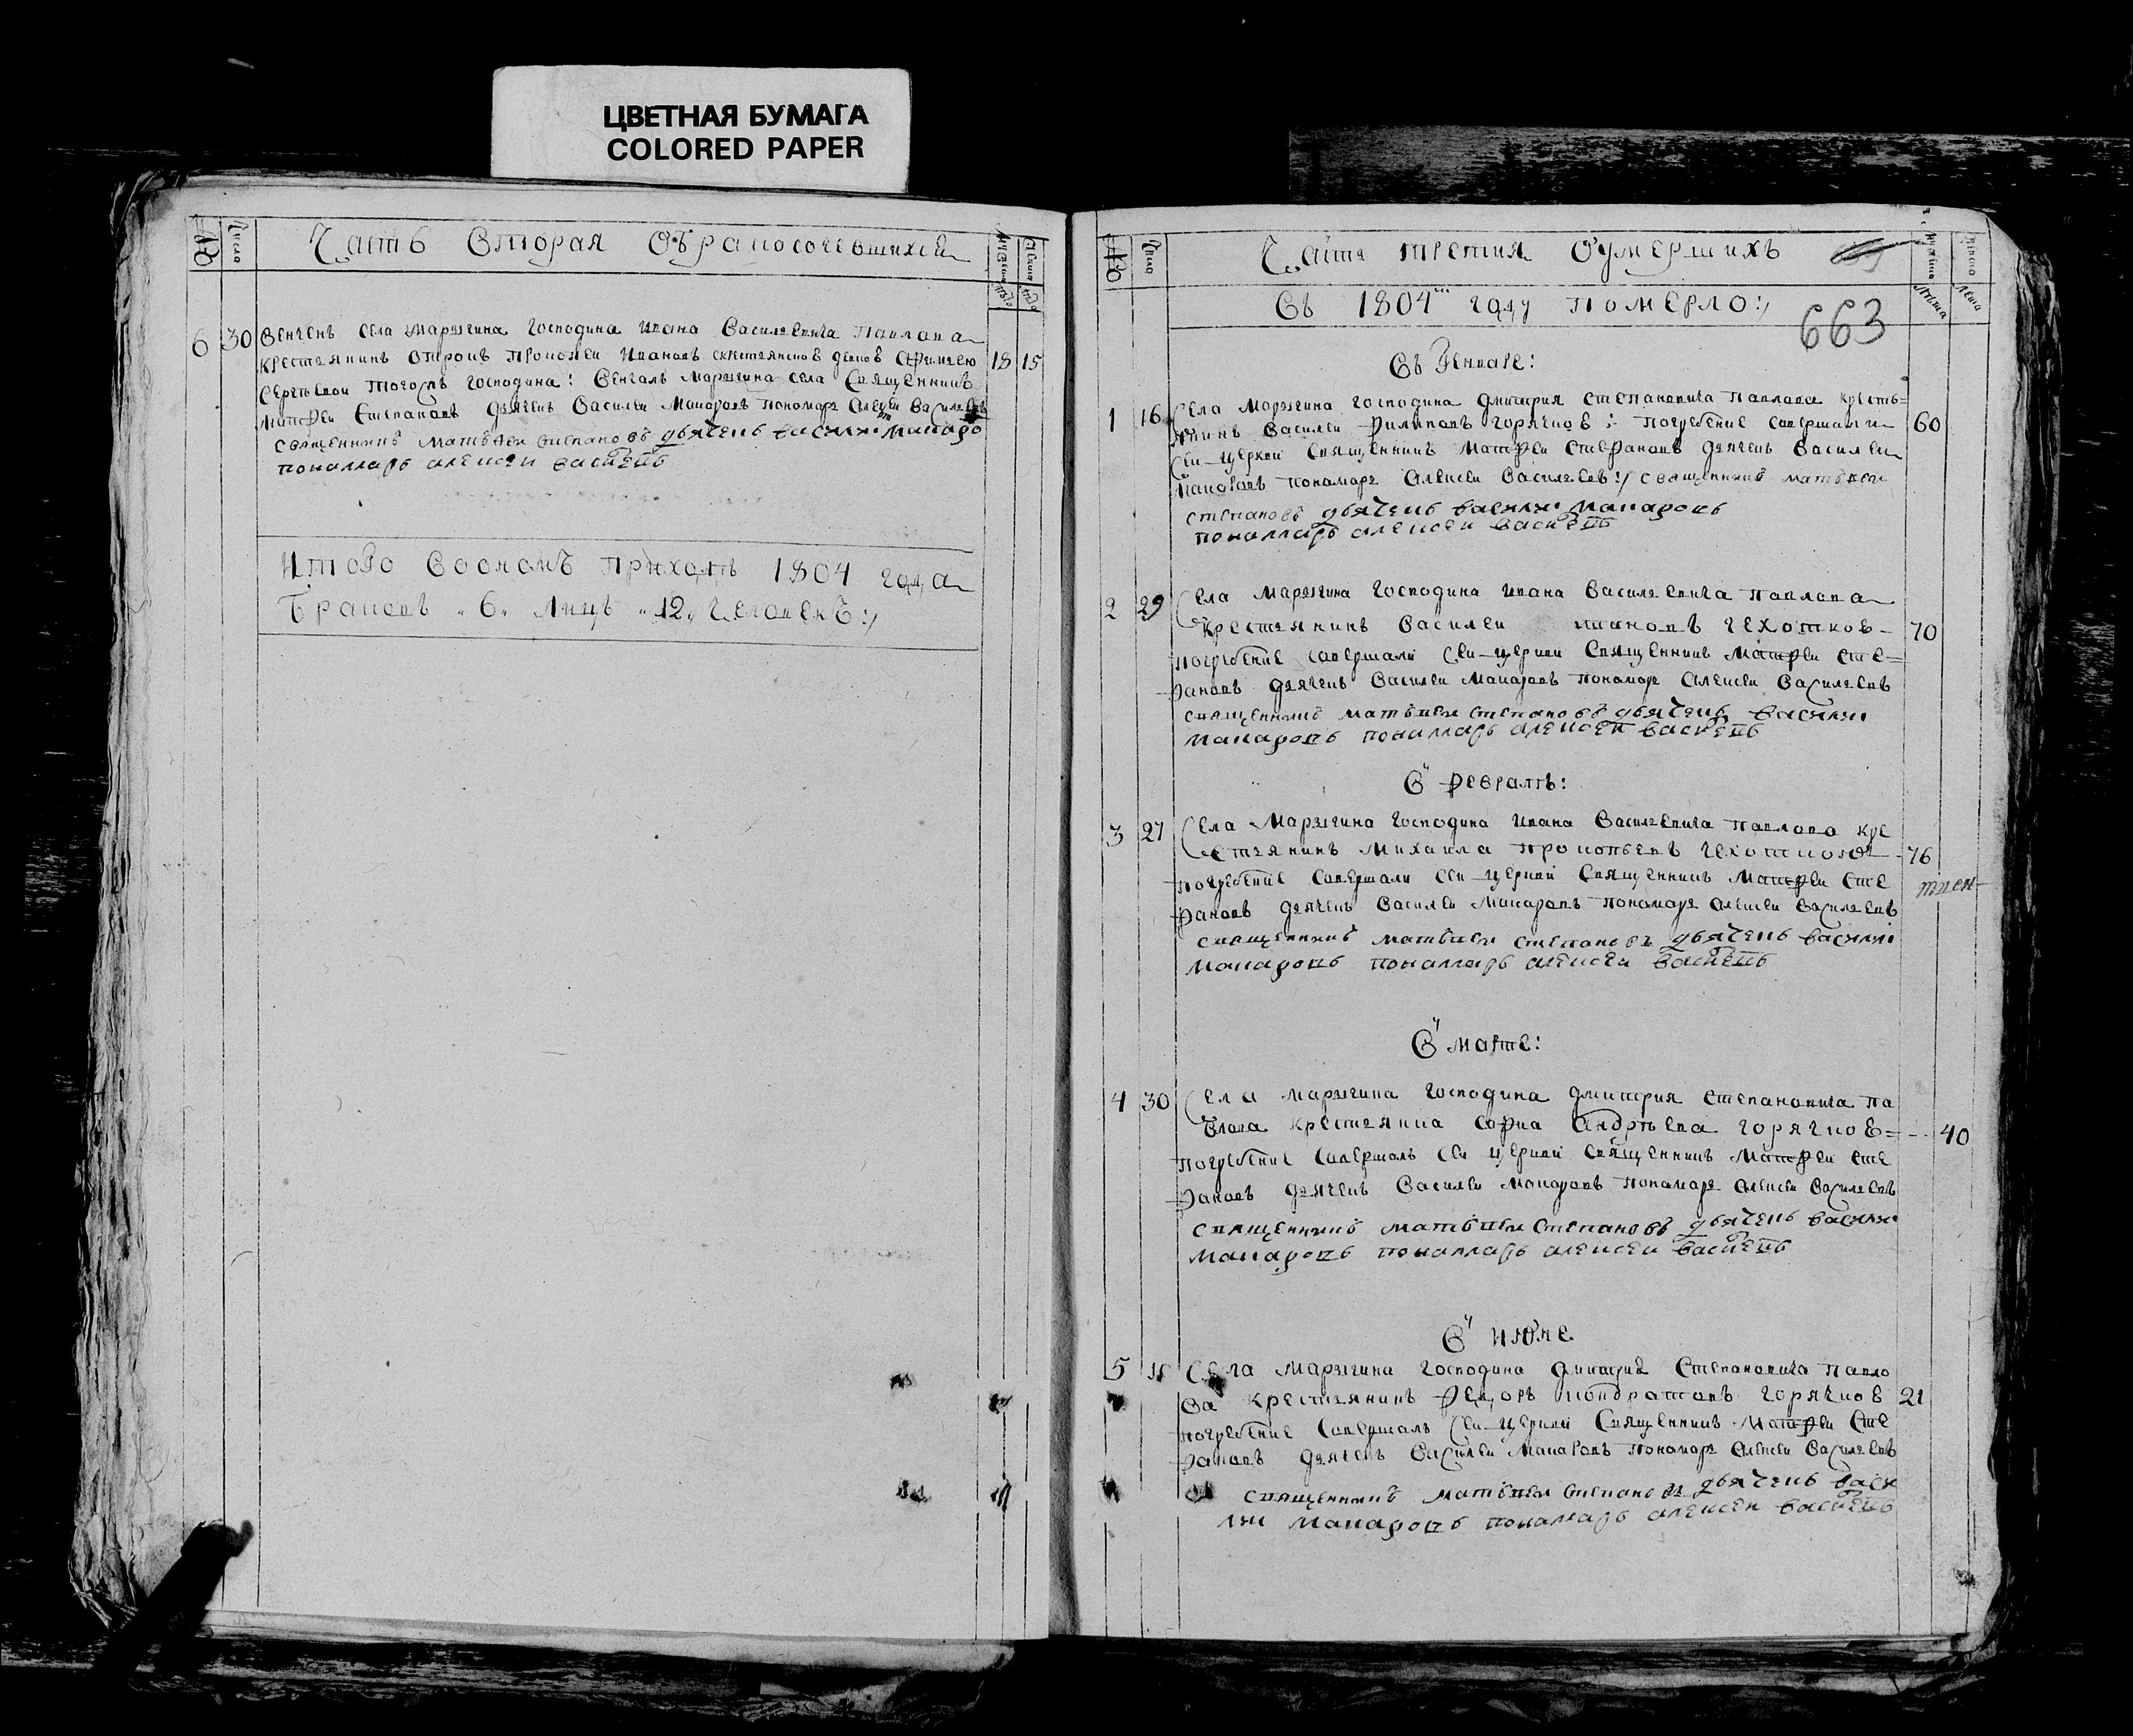 ЦВЕТНАЯ БУМАГА
COLORED PAPER
№
Число
Часть вторая о бракосочетавшихся
6 30 Венчен села Марыгина господина Ивана Василевича Павлова
крестьянин отрок Прокофеи Иванов 18 15
господина: Венчал Марыгина села священник
Матфеи Степанов дьячек Василеи Макаров пономарь Алексеи Василев
священникъ матвѣеи степановъ дьячекъ василии макаро
пономарь алексеи
Итого в оном приходѣ 1804 года
Браков 6 лицъ 12 человекъ:/
№
Число
Часть третия о умерших
Въ 1804 году померло:/
663
Въ Генваре:
1 16 Села Марыгина господина Дмитрия Степановича Павлова кресть=
янинъ Василеи Филипов Горячков: погребение совершали 60
сеи церкви священникъ Матфеи Стефановъ дьячекъ Василеи
Макаровъ пономарь Алексеи Василевъ:/ священникъ матвѣеи
степановъ дьячекъ василии макаровъ
пономарь алексеи
2 29 Села Марыгина господина Ивана Василевича Павлова
крестьянинъ Василеи Иванов Чехотков 70
погребение совершали сеи церкви священникъ Матфеи Сте=
фановъ дьячекъ Василеи Макаровъ пономарь Алексеи Василевъ
священникъ матвѣеи степановъ дьячекъ василии
макаровъ пономарь алексеи
В феврале:
3 27 Села Марыгина господина Ивана Василевича Павлова кре
стьянинъ Михаила Прокопьевъ 76
погребение совершали сеи церкви священникъ Матфеи Сте
фановъ дьячекъ Василеи Макаровъ пономарь Алексеи Василевъ
священникъ матвѣеи степановъ дьячекъ василии
макаровъ пономарь алексеи
В марте:
4 30 Села Марыгина господина Дмитрия Степановича Па
влова крестьянка Софиа Андрѣева Горячков= 40
погребение совершалъ сеи церкви священникъ Матфеи Сте
фановъ дьячекъ Василеи Макаровъ пономарь Алексеи Василевъ
священникъ матвѣеи степановъ дьячекъ василии
макаровъ пономарь алексеи
В июне
5 Села Марыгина господина Дмитрия Степановича Павло
ва крестьянинъ Федоръ Кондратовъ Горячков 21
погребение совершалъ сеи церкви священникъ Матфеи Сте
фановъ дьячекъ Василеи Макаровъ пономарь Алексеи Василевъ
священникъ матвѣеи степановъ дьячекъ васи
лии макаровъ пономарь алексеи